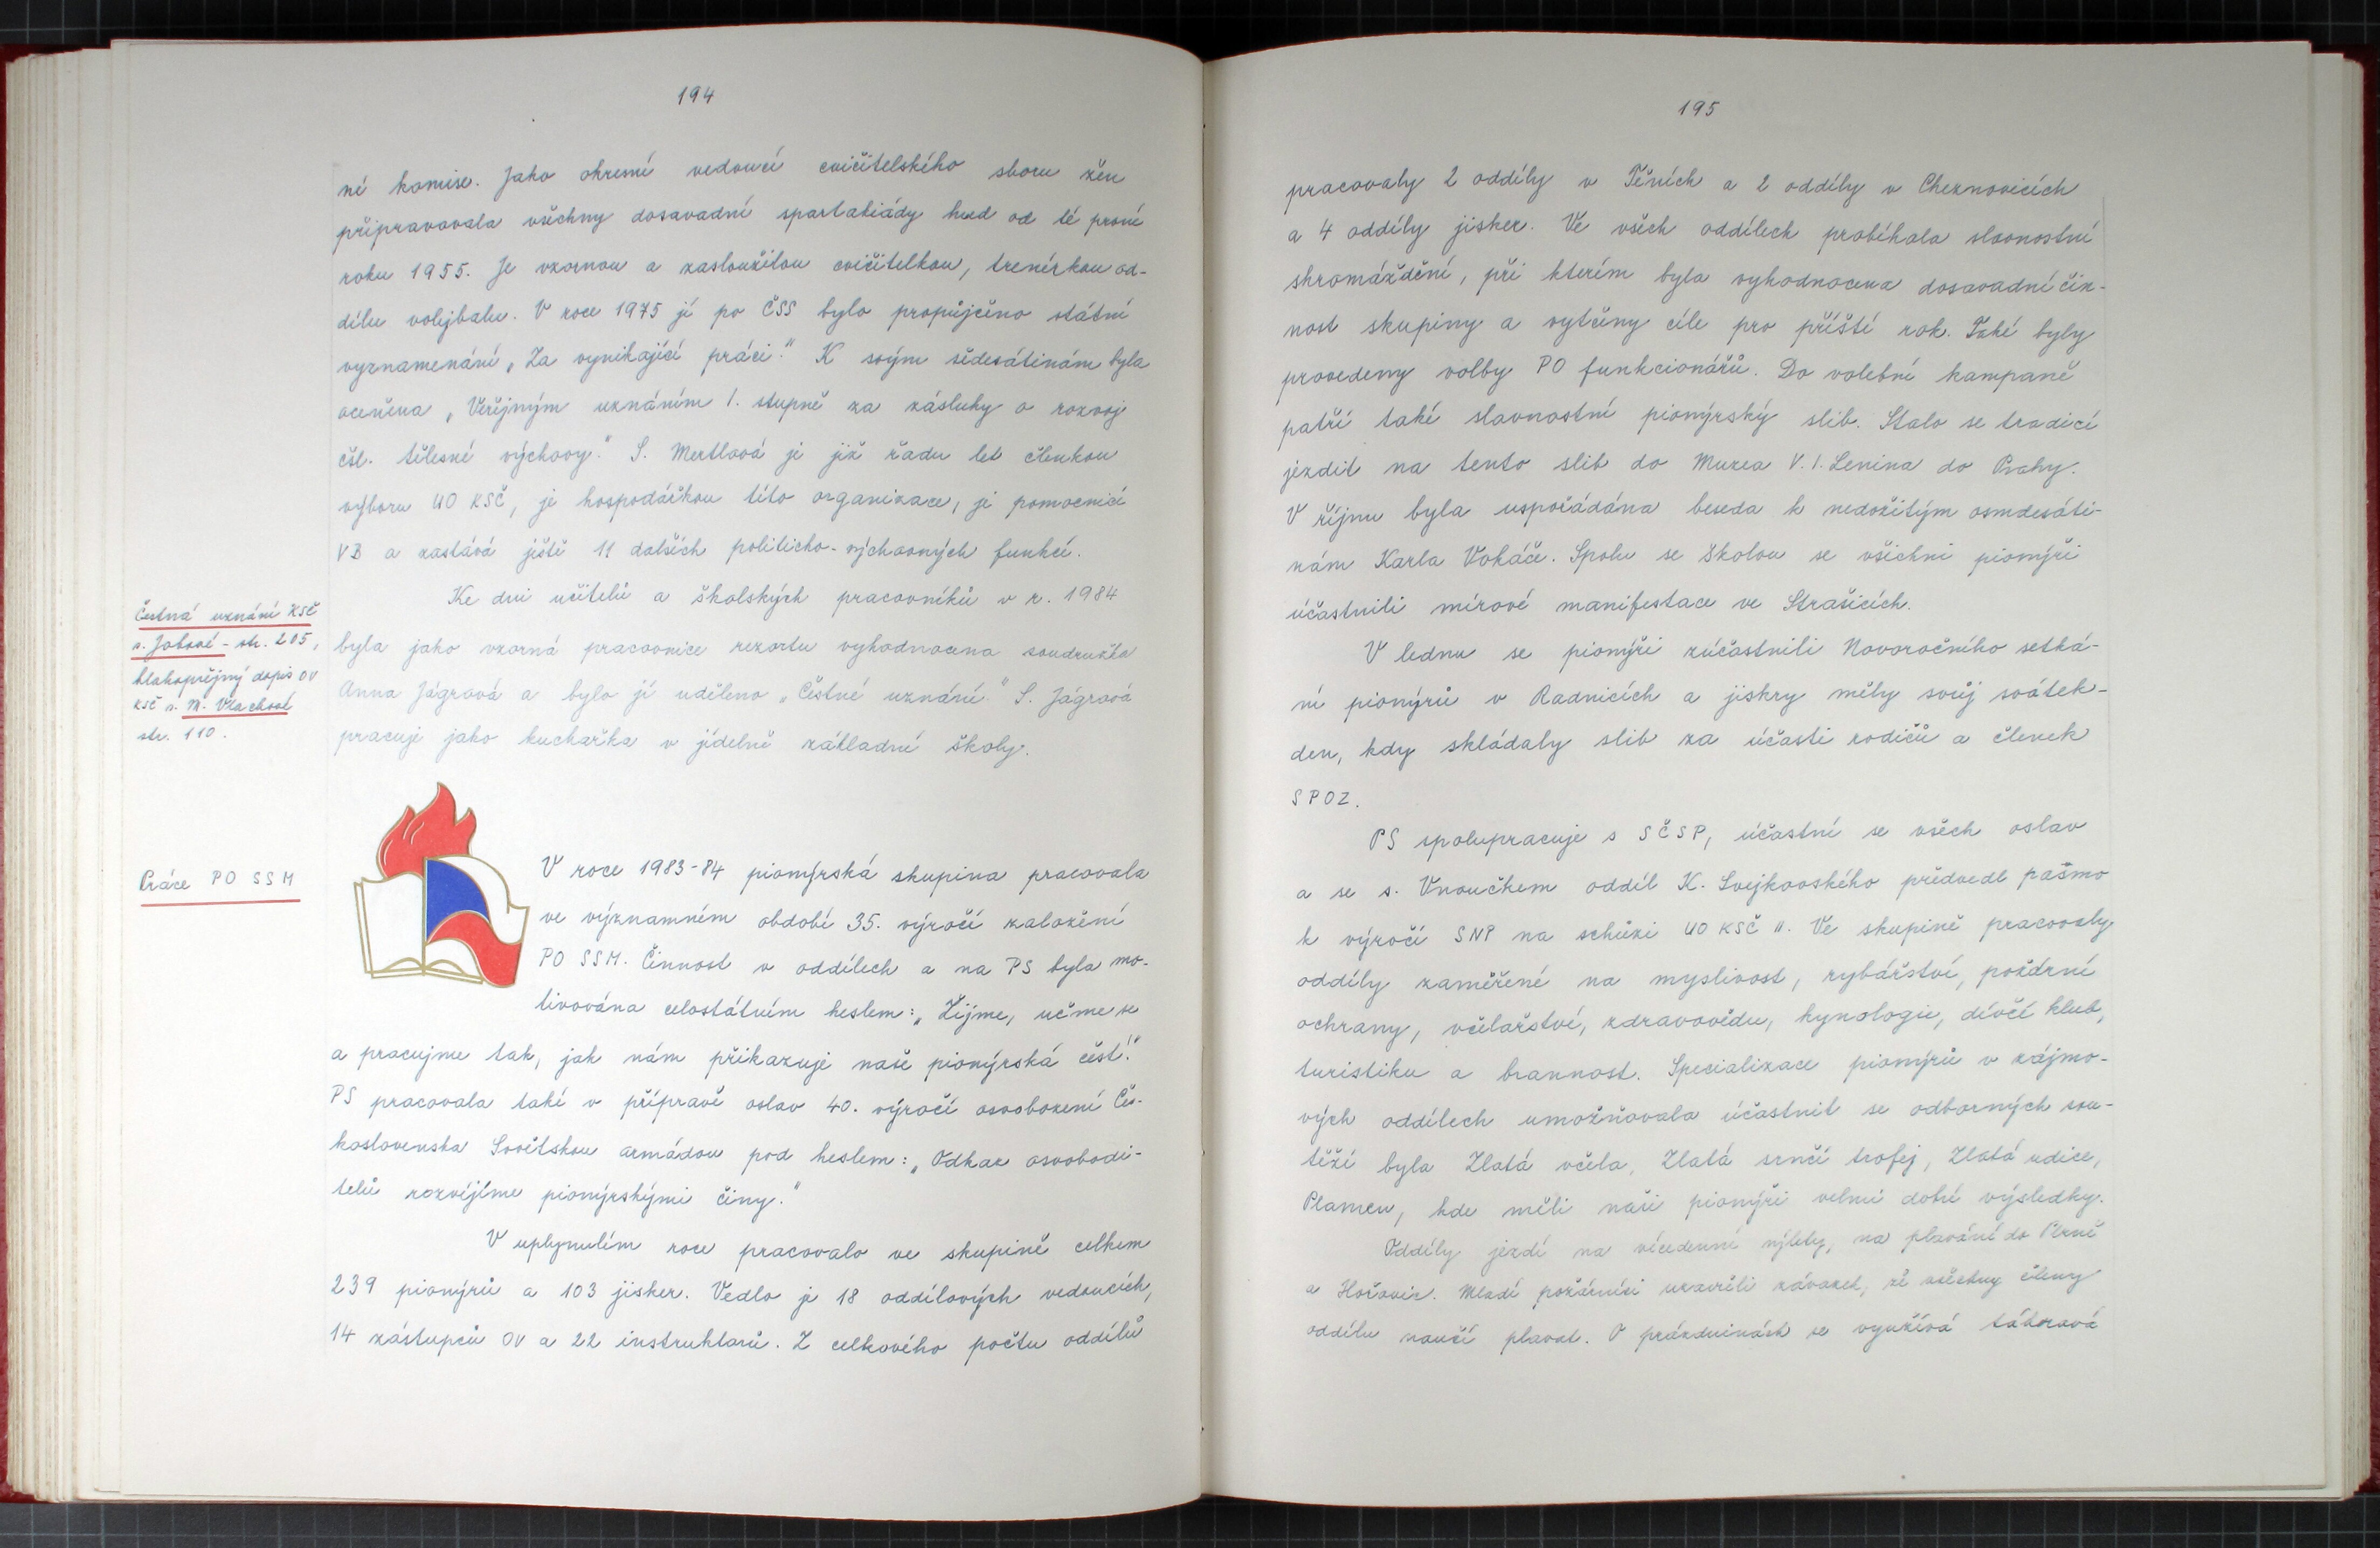 194
ní komise. Jako okresní vedoucí cvičitelského sboru žen
připravovala všechny dosavadní spartakiády hned od té první
roku 1955. Je vzornou a zasloužilou cvičitelkou, trenérkou od-
dílu volejbalu. V roce 1975 jí po ČSS bylo propůjčeno státní
vyznamenání „Za vynikající práci." K svým šedesátinám byla
oceněna „Veřejným uznáním I. stupně za zásluhy o rozvoj
čsl. tělesné výchovy." S. Mertlová je již řadu let členkou
výboru UO KSČ, je hospodářkou této organizace, je pomocnicí
VB a zastává ještě 11 dalších politicko-výchovných funkcí.
Ke dni učitelů a školských pracovníků v r. 1984
byla jako vzorná pracovnice rezortu vyhodnocena soudružka
Anna Jágrová a bylo jí uděleno „Čestné uznání." S. Jágrová
pracuje jako kuchařka v jídelně základní školy.
Čestná uznání KSČ
s. Jobové - str. 205,
blahopřejný dopis OV
KSČ s. M. Vlachové
str. 110.
Práce PO SSM
V roce 1983-84 pionýrská skupina pracovala
ve významném období 35. výročí založení
PO SSM. Činnost v oddílech a na PS byla mo-
tivována celostátním heslem: „Žijme, učme se
a pracujme tak, jak nám přikazuje naše pionýrská čest!"
PS pracovala také v přípravě oslav 40. výročí osvobození Čes-
koslovenska Sovětskou armádou pod heslem: „Odkaz osvobodi-
telů rozvíjíme pionýrskými činy."
V uplynulém roce pracovalo ve skupině celkem
239 pionýrů a 103 jisker. Vedlo je 18 oddílových vedoucích,
14 zástupců OV a 22 instruktorů. Z celkového počtu oddílů
195
pracovaly 2 oddíly v Těních a 2 oddíly v Cheznovicích
a 4 oddíly jisker. Ve všech oddílech probíhala slavnostní
shromáždění, při kterém byla vyhodnocena dosavadní čin-
nost skupiny a vytčeny cíle pro příští rok. Také byly
provedeny volby PO funkcionářů. Do volební kampaně
patří také slavnostní pionýrský slib. Stalo se tradicí
jezdit na tento slib do Muzea V. I. Lenina do Prahy.
V říjnu byla uspořádána beseda k nedožitým osmdesáti-
nám Karla Vokáče. Spolu se školou se všichni pionýři
účastnili mírové manifestace ve Strašicích.
V lednu se pionýři zúčastnili Novoročního setká-
ní pionýrů v Radnicích a jiskry měly svůj svátek-
den, kdy skládaly slib za účasti rodičů a členek
SPOZ.
PS spolupracuje s SČSP, účastní se všech oslav
a se s. Vnoučkem oddíl K. Svejkovského předvedl pásmo
k výročí SNP na schůzi UO KSČ II. Ve skupině pracovaly
oddíly zaměřené na myslivost, rybářství, požární
ochrany, včelařství, zdravovědu, kynologii, dívčí klub,
turistiku a brannost. Specializace pionýrů v zájmo-
vých oddílech umožňovala účastnit se odborných sou-
těží byla Zlatá včela, Zlatá srnčí trofej, Zlatá udice,
Plamen, kde měli naši pionýři velmi dobré výsledky.
Oddíly jezdí na vícedenní výlety, na plavání do Plzně
a Hořovic. Mladí požárníci uzavřeli závazek, že všechny členy
oddílu naučí plavat. O prázdninách se využívá táborová